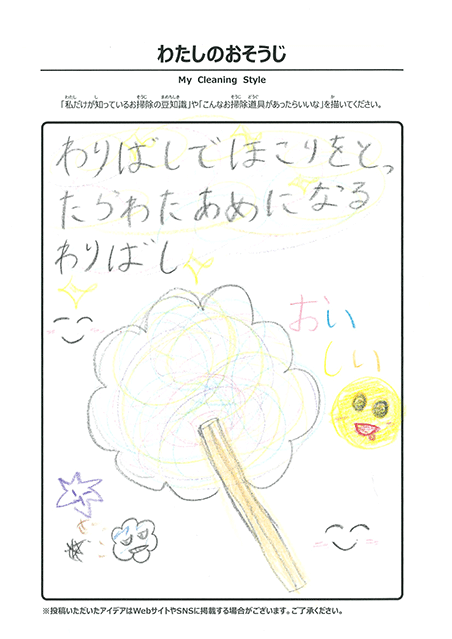 わたしのおそうじ
My Cleaning Style
「私だけが知っているお掃除の豆知識」や「こんなお掃除道具があったらいいな」を描いてください。
わりばしでほこりをとっ
たらわたあめになる
わりばし
おい
しい
※投稿いただいたアイデアはWebサイトやSNSに掲載する場合がございます。ご了承ください。